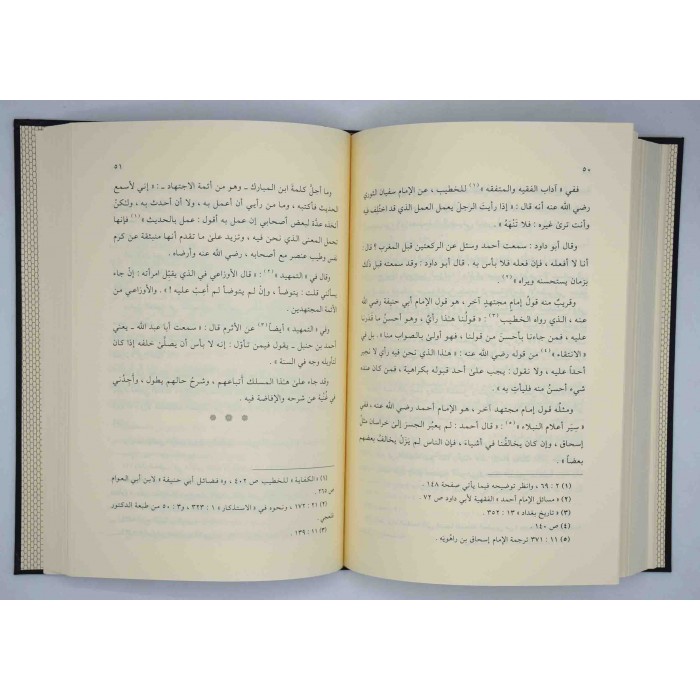 ٥٠
ففي « آداب الفقيه والمتفقه » (١) للخطيب ، عن الإمام سفيان الثوري
رضي الله عنه أنه قال : « إذا رأيتَ الرجلَ يعملُ العمل الذي قد اختُلِف فيه
وأنت ترى غيره : فلا تَنْهَهُ » .
وقال أبو داود : سمعت أحمد وسئل عن الركعتين قبل المغرب ؟ قال :
أنا لا أفعله ، فإن فعله فلا بأس به . قال أبو داود : وقد سمعته قبل ذلك
بزمان يستحسنه ويراه » (٢) .
وقريبٌ منه قولُ إمامٍ مجتهدٍ آخر ، هو قول الإمام أبي حنيفة رضي الله
عنه ، الذي رواه الخطيب (٣) : « قولُنا هذا رأيٌ ، وهو أحسنُ ما قدرنا
عليه ، فمن جاءنا بأحسنَ من قولنا ، فهو أولىٰ بالصواب منا » . بل في
« الانتقاء » (٤) من قوله رضي الله عنه : « هذا الذي نحن فيه رأي لا نجبر
أحداً عليه ، ولا نقول : يجب علىٰ أحد قبوله بكراهية ، فمن كان عنده
شيء أحسنُ منه فليأتِ به » .
ومثلُه قول إمام مجتهد آخر ، هو الإمام أحمد رضي الله عنه ، ففي
« سِيَر أعلام النبلاء » (٥) : « قال أحمد : لم يعبُر الجسرَ إلىٰ خراسان مثلُ
إسحاق ، وإن كان يخالفُنا في أشياءَ ، فإن الناس لم يَزَلْ يخالفُ بعضُهم
بعضاً » .
(١) ٢ : ٦٩ ، وانظر توضيحه فيما يأتي صفحة ١٤٨ .
(٢) « مسائل الإمام أحمد » الفقهية لأبي داود ص ٧٢ .
(٣) « تاريخ بغداد » ١٣ : ٣٥٢ .
(٤) ص ١٤٠ .
(٥) ١١ : ٣٧١ ترجمة الإمام إسحاق بن راهُويَه .
٥١
وما أجلَّ كلمةَ ابن المبارك ـ وهو من أئمة الاجتهاد ـ : « إني لأسمع
الحديث فأكتبه ، وما من رأيي أن أعمل به ، ولا أن أحدث به ، ولكنْ
أتخذه عدَّة لبعض أصحابي إن عمل به أقول : عمل بالحديث » (١) فإنها
تحمل المعنى الذي نحن فيه ، وتزيد علىٰ ما تقدم أنها منبثقة عن كرم
نفس وطيب عنصر مع أصحابه ، رضي الله عنه وأرضاه .
وقال في « التمهيد » (٢) : « قال الأوزاعي في الذي يقبِّل امرأته : إنْ جاء
يسألني قلت : يتوضأ ، وإنْ لم يتوضأ لم أعِبْ عليه ! » . والأوزاعي من
الأئمة المجتهدين .
وفي « التمهيد » أيضاً (٣) عن الأثرم قال : « سمعت أبا عبد الله ـ يعني
أحمد بن حنبل ـ يقول فيمن تأوَّل : إنه لا بأس أن يصلَّىٰ خلفه إذا كان
لتأويله وجه في السنة » .
وقد جاء علىٰ هذا المسلك أتباعهم ، وشرحُ حالهم يطول ، وأجِدُني
في غُنْيَة عن شرحه والإفاضة فيه .
(١) « الكفاية » للخطيب ص ٤٠٢ ، و« فضائل أبي حنيفة » لابن أبي العوام
ص ٢٦٥ .
(٢) ٢١ : ١٧٢ ، ونحوه في « الاستذكار » ١ : ٣٢٣ ، و٣ : ٥٠ من طبعة الدكتور
(٣) ١١ : ١٣٩ .